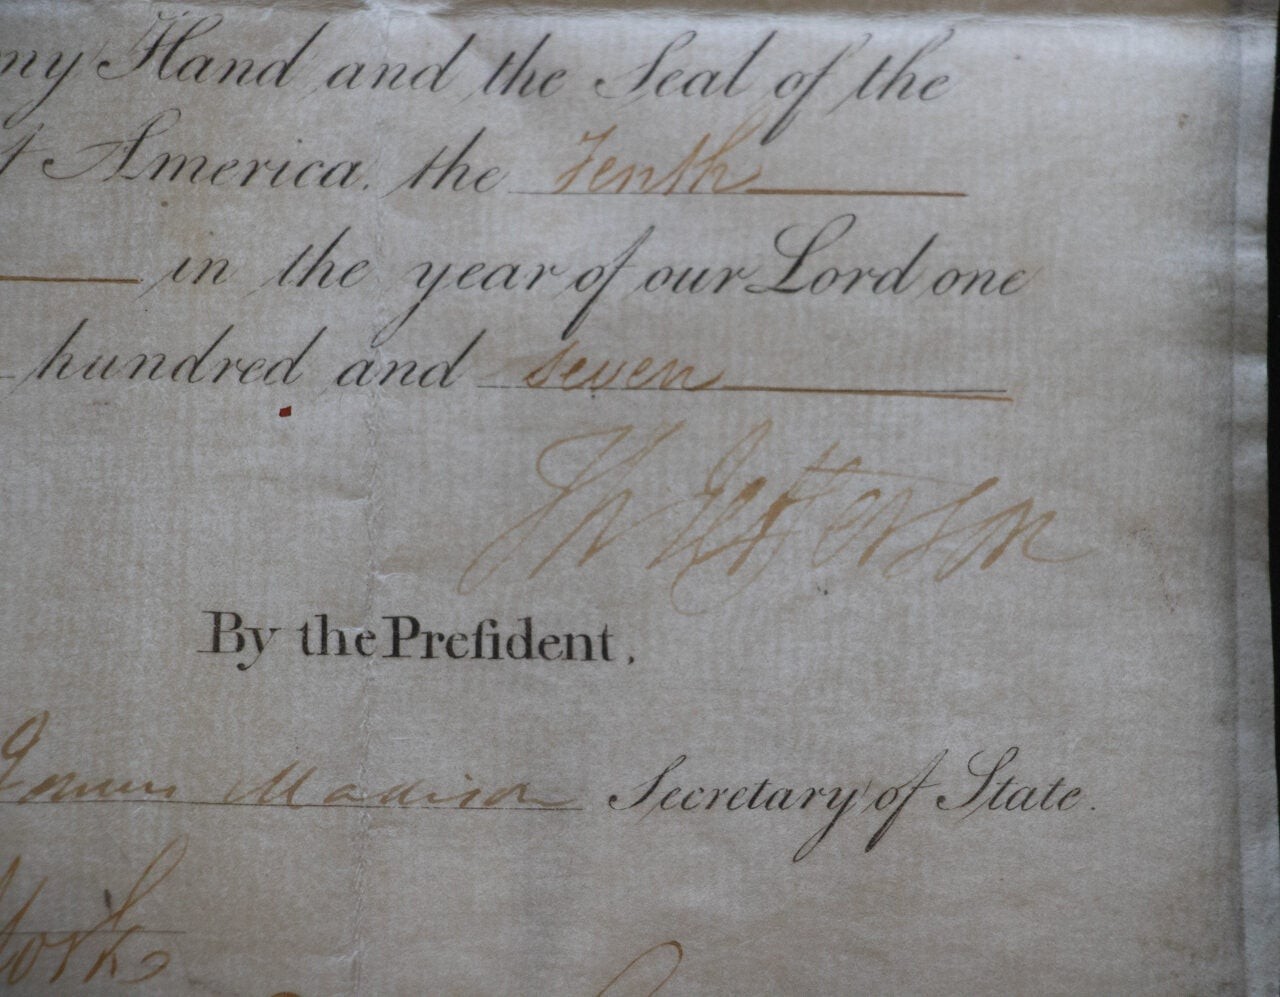 my Hand and the Seal of the
America. the Tenth
in the year of our Lord one
hundred and seven
Th Jefferson
By the Preſident,
James Madison Secretary of State.
York